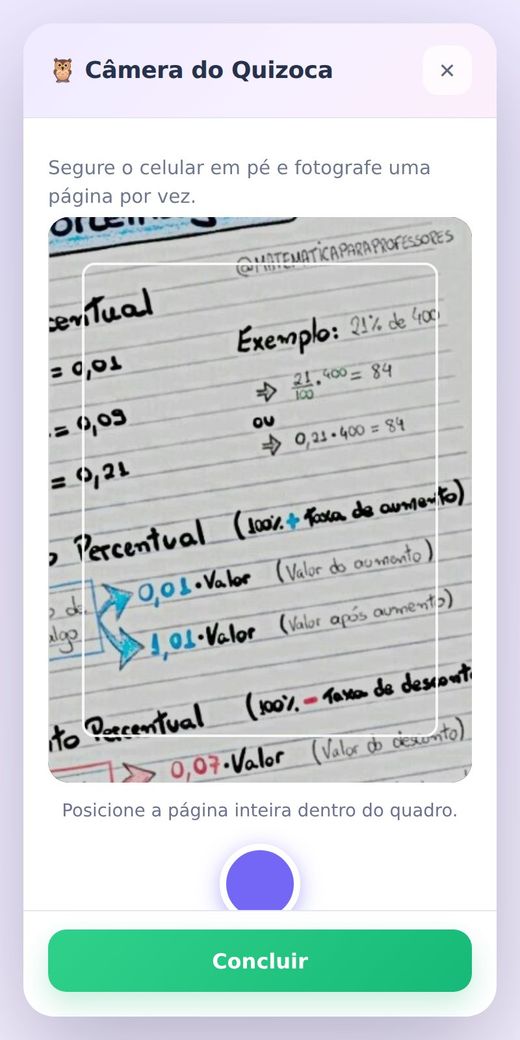 Câmera do Quizoca
×
Segure o celular em pé e fotografe uma
página por vez.
@MATEMATICAPARAPROFESSORES
centual
Exemplo: 21% de 400
= 0,01
⇒ 21/100 · 400 = 84
= 0,09
ou
⇒ 0,21 · 400 = 84
= 0,21
o Percentual (100% + Taxa de aumento)
o de
algo
0,01 · Valor (Valor do aumento)
1,01 · Valor (Valor após aumento)
nto Percentual (100% - Taxa de desconto
0,07 · Valor (Valor do desconto)
Posicione a página inteira dentro do quadro.
Concluir